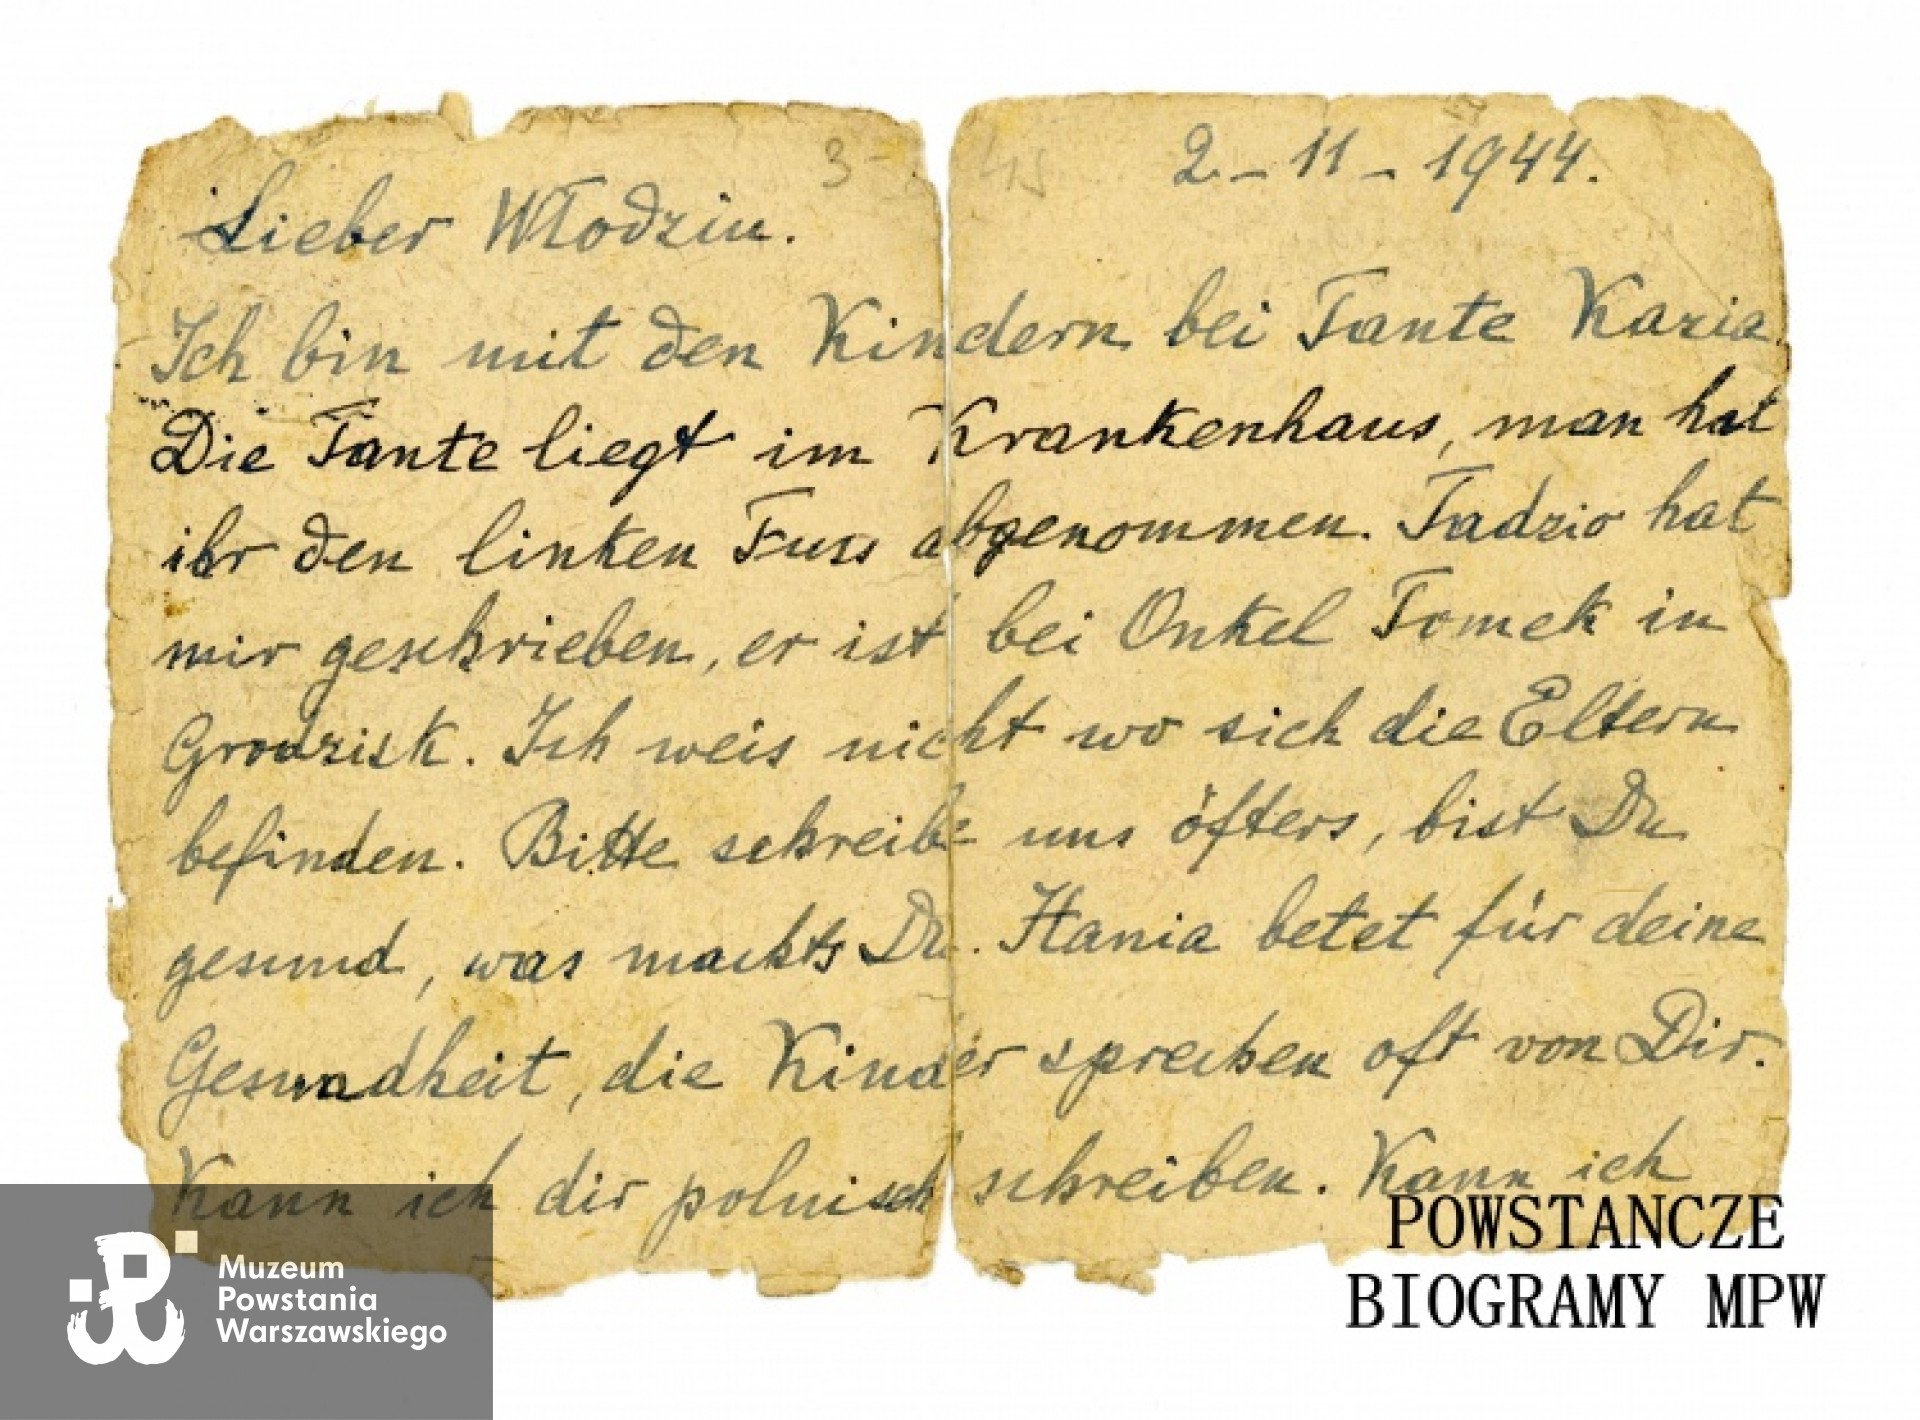 2 - 11 - 1944.
Lieber Włodziu.
Ich bin mit den Kindern bei Tante Kazia.
Die Tante liegt im Krankenhaus, man hat
ihr den linken Fuss abgenommen. Tadzio hat
mir geschrieben, er ist bei Onkel Tomek in
Grodzisk. Ich weis nicht wo sich die Eltern
befinden. Bitte schreibe uns öfters, bist Du
gesund, was machts Du. Hania betet für deine
Gesundheit, die Kinder sprechen oft von Dir.
Kann ich dir polnisch schreiben. Kann ich
Muzeum
Powstania
Warszawskiego
POWSTANCZE
BIOGRAMY MPW